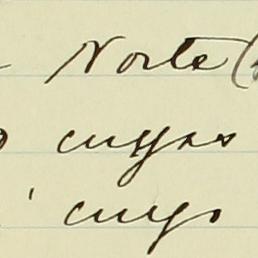 Norte (
cuyas
cuyo